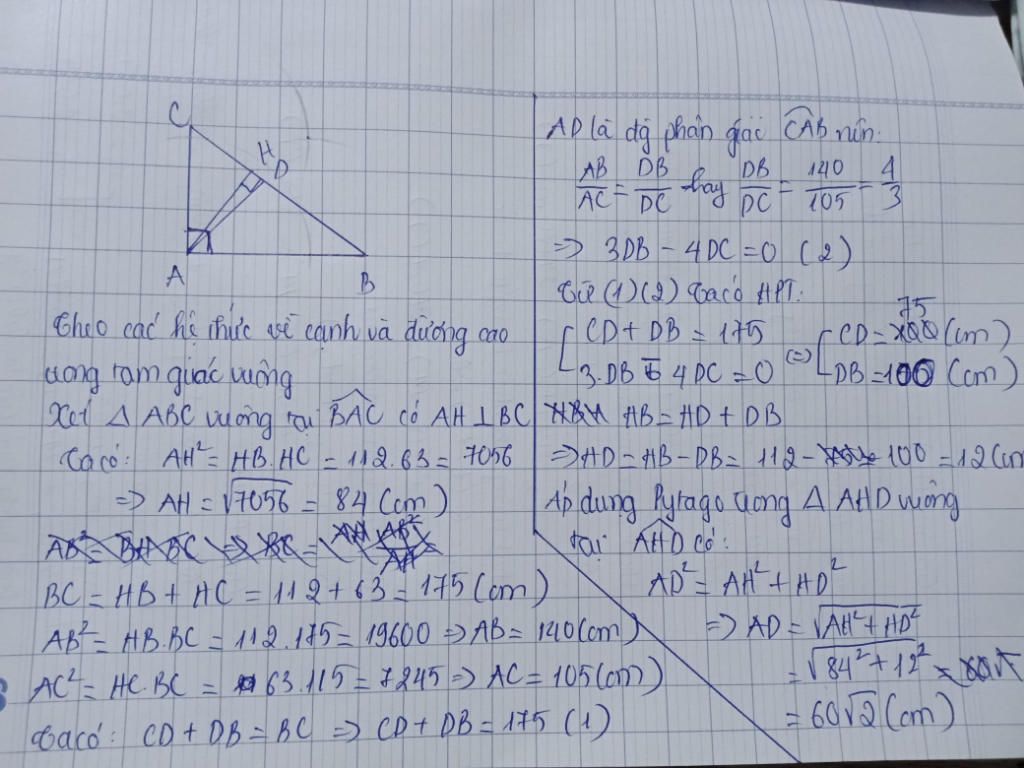 C
H
D
A
B
Theo các hệ thức về cạnh và đường cao
trong tam giác vuông
Xét △ ABC vuông tại BAC có AH⊥BC
Ta có: AH² = HB.HC = 112.63 = 7056
=> AH = √7056 = 84 (cm)
BC = HB + HC = 112 + 63 = 175 (cm)
AB² = HB.BC = 112.175 = 19600 => AB = 140 (cm)
AC² = HC.BC = 63.115 = 7245 => AC = 105 (cm)
Ta có: CD + DB = BC => CD + DB = 175 (1)
AD là đg phân giác CAB nên:
AB/AC = DB/DC hay DB/DC = 140/105 = 4/3
=> 3DB - 4DC = 0 (2)
Từ (1) (2) ta có HPT:
[CD + DB = 175 (=) [CD = 75 (cm)
3.DB - 4DC = 0 DB = 100 (cm)
HB = HD + DB
=> HD = HB - DB = 112 - 100 = 12 (cm
Áp dụng Pytago trong △ AHD vuông
tại AHD có:
AD² = AH² + HD²
=> AD = √AH² + HD²
= √84² + 12²
= 60√2 (cm)